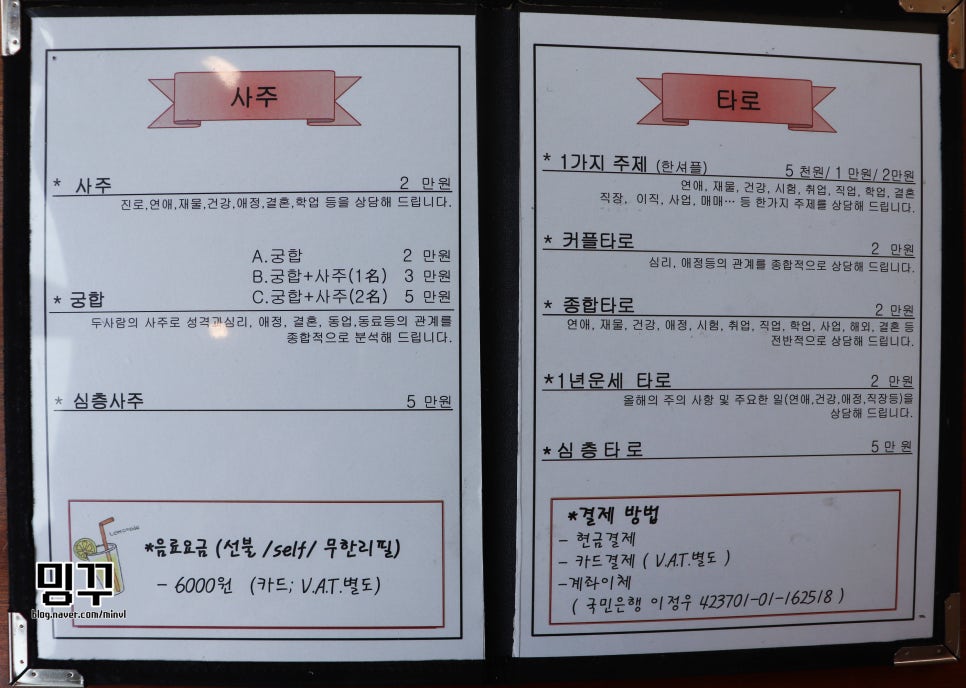 사주
* 사주 2 만원
진로,연애,재물,건강,애정,결혼,학업 등을 상담해 드립니다.
A.궁합 2 만원
B.궁합+사주(1名) 3 만원
* 궁합 C.궁합+사주(2名) 5 만원
두사람의 사주로 성격과심리, 애정, 결혼, 동업,동료등의 관계를
종합적으로 분석해 드립니다.
* 심층사주 5 만원
LEMONADE
*음료요금 (선불 /self/ 무한리필)
- 6000원 (카드; V.A.T.별도)
밈꾸
blog.naver.com/minvl
타로
* 1가지 주제 (한셔플) 5 천원/ 1 만원/ 2만원
연애, 재물, 건강, 시험, 취업, 직업, 학업, 결혼
직장, 이직, 사업, 매매… 등 한가지 주제를 상담해 드립니다.
* 커플타로 2 만원
심리, 애정등의 관계를 종합적으로 상담해 드립니다.
* 종합타로 2 만원
연애, 재물, 건강, 애정, 시험, 취업, 직업, 학업, 사업, 해외, 결혼 등
전반적으로 상담해 드립니다.
*1년운세 타로 2 만원
올해의 주의 사항 및 주요한 일(연애,건강,애정,직장등)을
상담해 드립니다.
* 심층타로 5만원
*결제 방법
- 현금결제
- 카드결제 ( V.A.T.별도 )
-계좌이체
( 국민은행 이정우 423701-01-162518 )